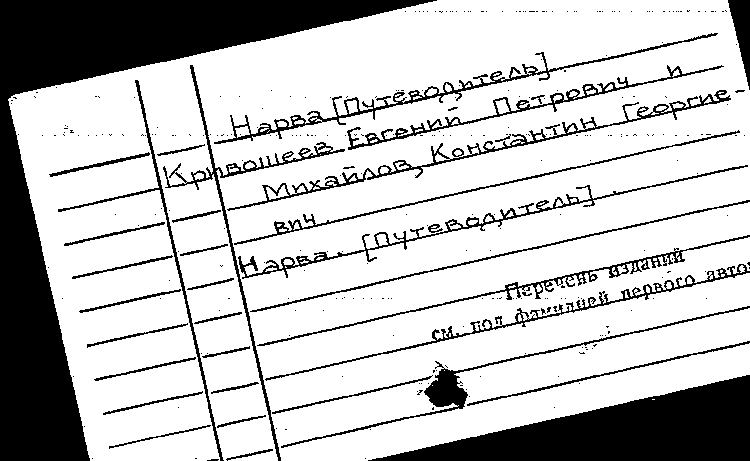 Нарва [Путеводитель].
Кривошеев Евгений Петрович и
Михайлов, Константин Георгие-
вич.
Нарва. [Путеводитель].
Перечень изданий
см. под фамилией первого автор